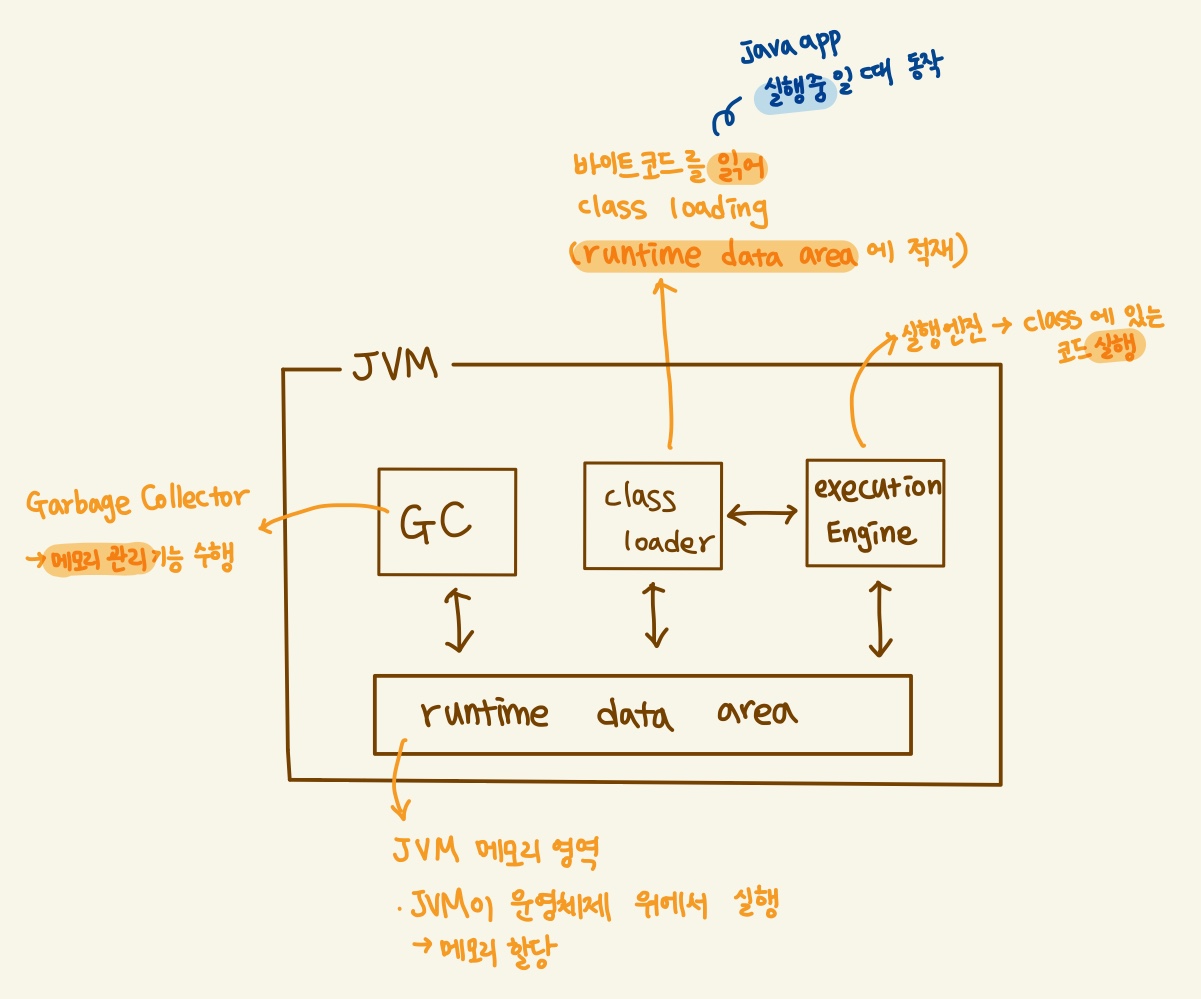 Java app
실행중일 때 동작
바이트코드를 읽어
class loading
(runtime data area에 적재)
실행엔진 → class에 있는
코드 실행
JVM
Garbage Collector
→ 메모리 관리 기능 수행
GC
class
loader
execution
Engine
runtime data area
JVM 메모리 영역
· JVM이 운영체제 위에서 실행
→ 메모리 할당